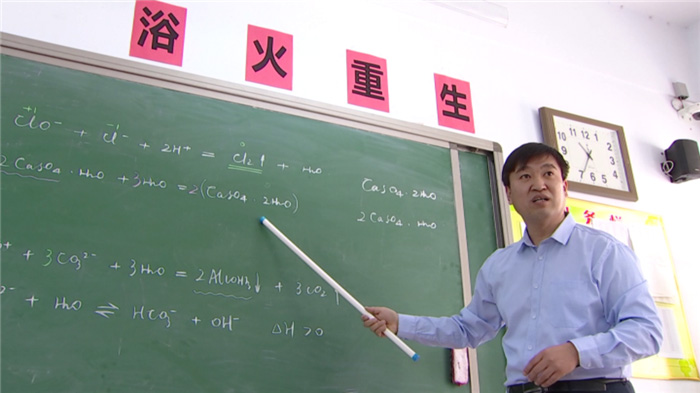 浴火重生
+1 -1 0
ClO⁻ + Cl⁻ + 2H⁺ = Cl₂↑ + H₂O
2CaSO₄·H₂O + 3H₂O = 2(CaSO₄·2H₂O)
CaSO₄·2H₂O
2CaSO₄·H₂O
+ 3CO₃²⁻ + 3H₂O = 2Al(OH)₃↓ + 3CO₂↑
+ H₂O ⇌ HCO₃⁻ + OH⁻ ΔH>0
12
1
2
3
4
5
6
7
8
9
10
11